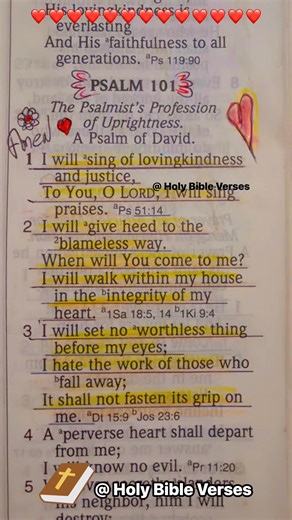 His lovingkindness is
everlasting
And His ᵃfaithfulness to all
generations. ᵃPs 119:90
PSALM 101
The Psalmist's Profession
of Uprightness.
A Psalm of David.
Amen
1 I will ᵃsing of lovingkindness
and justice,
To You, O LORD, I will sing
praises. ᵃPs 51:14
@ Holy Bible Verses
2 I will ᵃgive heed to the
²blameless way.
When will You come to me?
I will walk within my house
in the ᵇintegrity of my
heart. ᵃ1Sa 18:5, 14 ᵇ1Ki 9:4
3 I will set no ᵃworthless thing
before my eyes;
I hate the work of those who
ᵇfall away;
It shall not fasten its grip on
me. ᵃDt 15:9 ᵇJos 23:6
4 A ᵃperverse heart shall depart
from me;
I know no evil. ᵃPr 11:20
5
@ Holy Bible Verses
his neighbor, him I will
destroy;